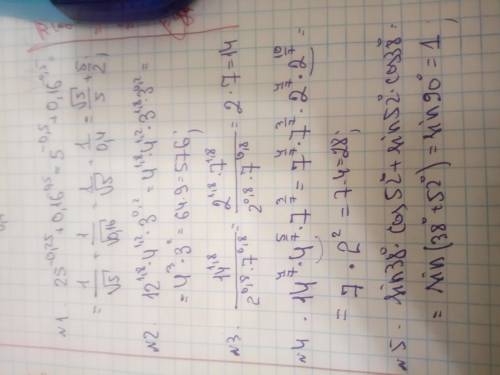 N1 25^-0,25 + 0,16^-0,5 = 5^-0,5 + 0,16^-0,5 =
= 1/√5 + 1/√0,16 = 1/√5 + 1/0,4 = √5/5 + 5/2;
N2 12^1,8 · 4^1,2 · 3^0,2 = 4^1,8 · 4^1,2 · 3^1,8 · 3^0,2 =
= 4^3 · 3^2 = 64·9 = 576;
N3. 14^1,8 / 2^0,8 · 7^0,8 = 2^1,8 · 7^1,8 / 2^0,8 · 7^0,8 = 2 · 7 = 14
N4. 14^4/7 · 4^5/7 · 7^3/7 = 7^4/7 · 7^3/7 · 2^4/7 · 2^10/7 =
= 7 · 2^2 = 7·4 = 28;
N5. sin38° · cos52° + sin52° · cos38° =
= sin(38° + 52°) = sin90° = 1;